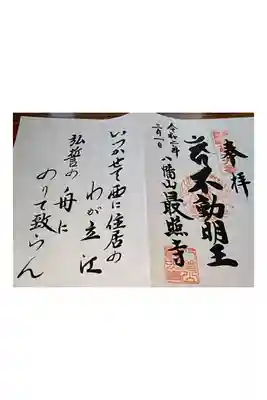 奉拝
不動明王
八幡山最照寺
令和二年
三月一日
いつかさて西に住居の
わが立江
弘誓の舟に
のりて致らん